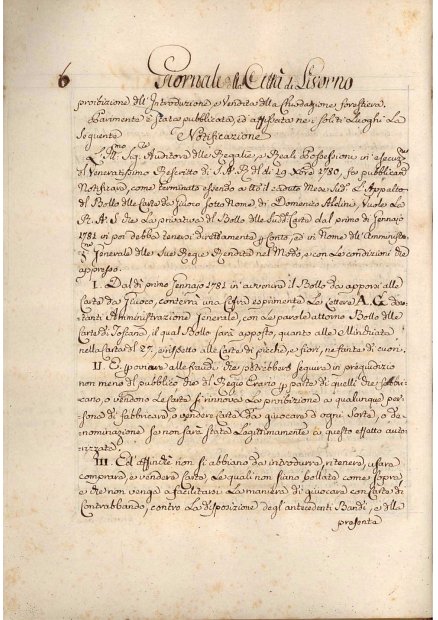 6 Giornale della Città di Livorno
proibizione dell'Introduzione e Vendita della Chiodagione forestiera.
Parimente è stata pubblicata, ed affissa ne i soliti Luoghi La
Seguente Notificazione
L'Ill.mo Sig. Auditore delle Regalie, e Reali Possessioni in esecuz.ne
Veneratissimo Rescritto di S. A. R. del dì 29 Xbre 1780, fa pubblicam.
Notificare, come terminato essendo a tutto il cadente Mese Sud.o L'Appalto
del Bollo delle Carte da Giuoco sotto Nome di Domenico Aldini, Vuole La
R. A. S. che La privativa del Bollo delle Sudd. Carte dal primo di Gennajo
1781 in poi debba tenersi direttamente p Conto, ed in Nome dell'Amministr.ne
Generale delle Sue Regie Rendite nel Modo, e con Le condizioni che
appresso.
I. Dal dì primo Gennajo 1781 in avvenire il Bollo da apporsi alle
Carte da Giuoco, conterrà una Cifra esprimente Le Lettere A. G. deno-
tanti Amministrazione Generale, con Le parole attorno Bollo delle
Carte di Toscana, il qual Bollo sarà apposto, quanto alle Minchiate
nella Carta del 27, e rispetto alle Carte di picche, e fiori, nel fante di cuori.
II. E p ovviare alle fraudi che potrebbero seguire in pregiudizio
non meno del pubblico che del Regio Erario p parte di quelli che fabbri-
cano, o vendono Le Carte si rinnova La proibizione a qualunque per-
sona di fabbricare, o vendere carte da giuocare d'ogni Sorta, o de-
nominazione se non sarà stata Legittimamente a questo effetto auto-
rizzata.
III. Ed affinchè non si abbiano da introdurre, ritenere, usare
comprare, e vendere Carte, Le quali non siano bollate come sopra
e che non venga a facilitarsi La maniera di giuocare con Carte di
Contrabbando, contro La disposizione degl'antecedenti Bandi, e della
presente